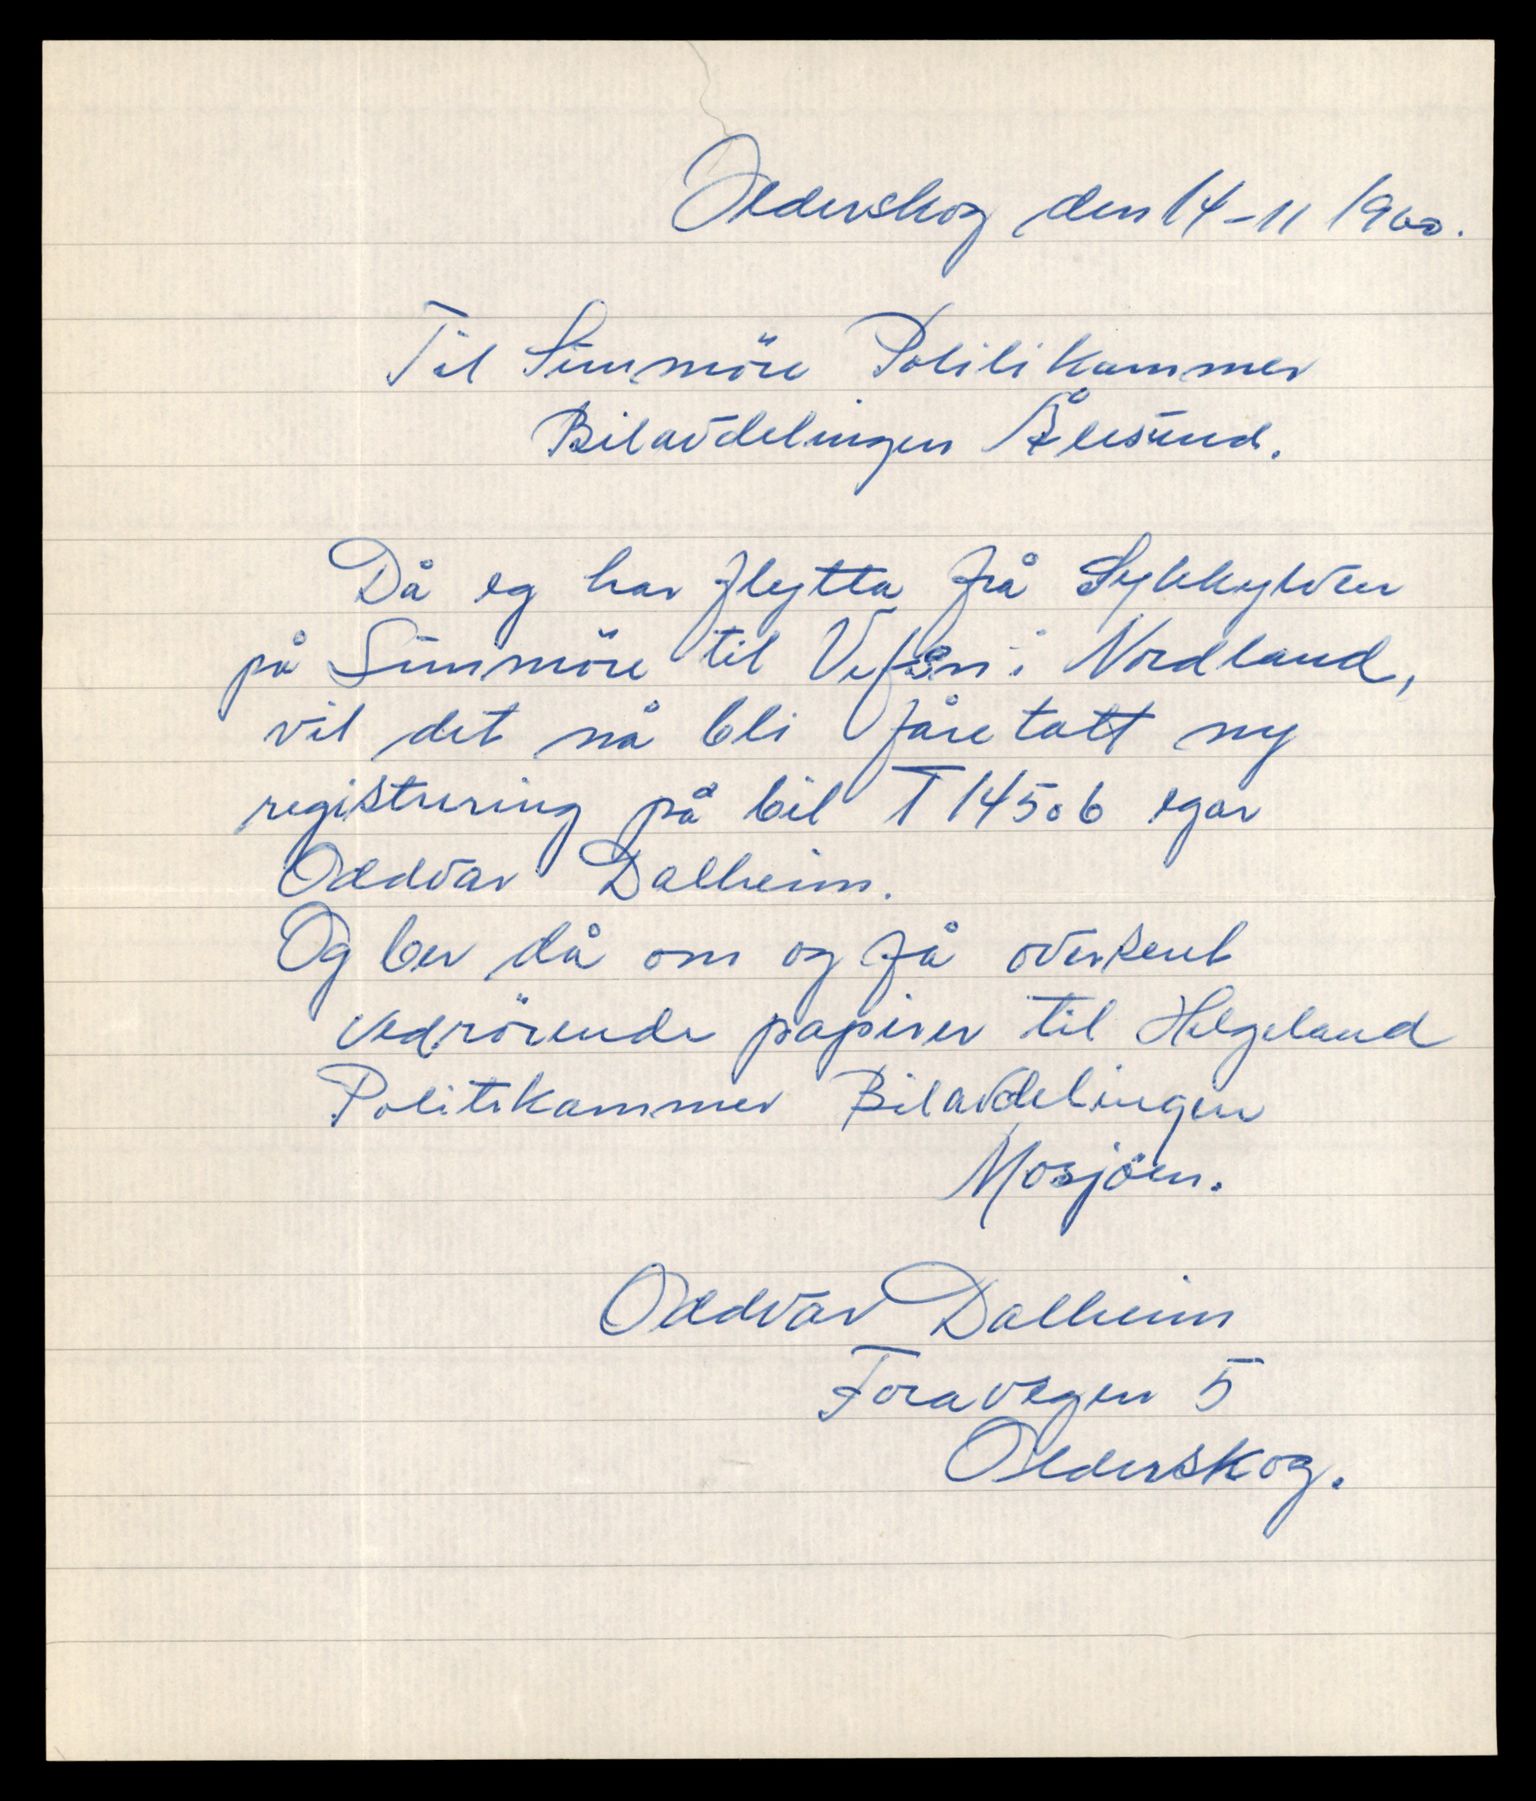 Olderskog den 14-11 1960.
Til Sunnmöre Politikammer
Bilavdelingen Ålesund.
Då eg har flytta frå Sykkylven
på Sunnmöre til Vefsn i Nordland,
vil det nå bli fåretatt ny
registrering på bil T 14506 egar
Oddvar Dalheim.
Og ber då om og få oversent
vedrörende papirer til Helgeland
Politikammer Bilavdelingen
Mosjöen.
Oddvar Dalheim
Foravegen 5
Olderskog.